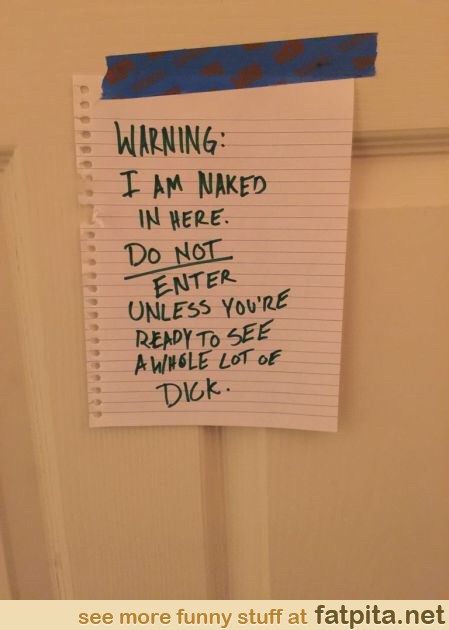 WARNING:
I AM NAKED
IN HERE.
DO NOT
ENTER
UNLESS YOU'RE
READY TO SEE
A WHOLE LOT OF
DICK.
see more funny stuff at fatpita.net